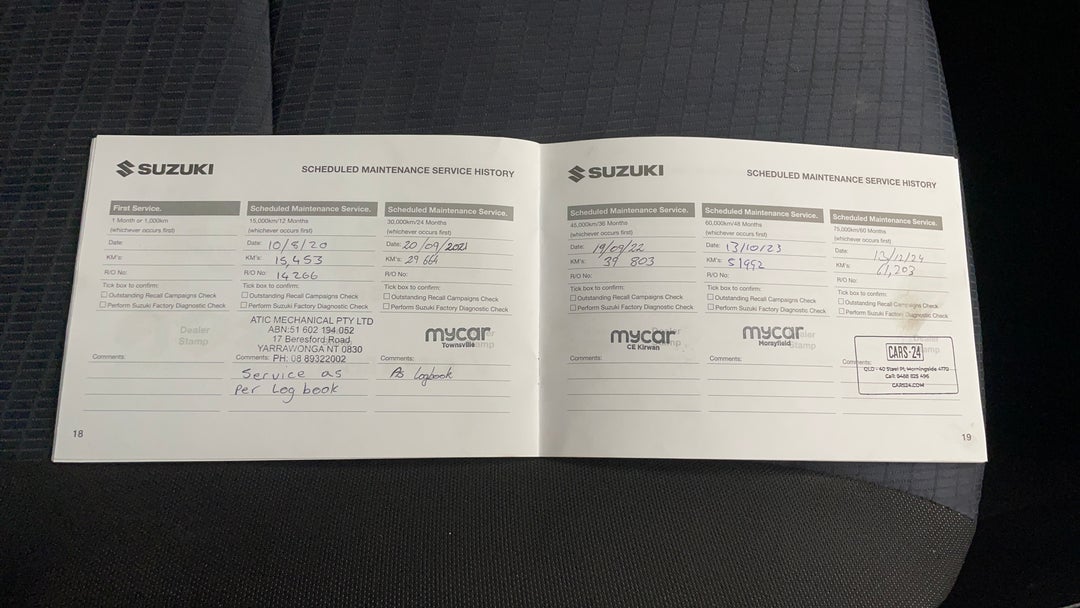 SUZUKI
SCHEDULED MAINTENANCE SERVICE HISTORY
First Service.
1 Month or 1,000km
(whichever occurs first)
Date:
KM's:
R/O No:
Tick box to confirm:
Outstanding Recall Campaigns Check
Perform Suzuki Factory Diagnostic Check
Dealer
Stamp
Comments:
Scheduled Maintenance Service.
15,000km/12 Months
(whichever occurs first)
Date: 10/8/20
KM's: 15,453
R/O No: 14266
Tick box to confirm:
Outstanding Recall Campaigns Check
Perform Suzuki Factory Diagnostic Check
ATIC MECHANICAL PTY LTD
ABN:51 602 194 052
17 Beresford Road,
YARRAWONGA NT 0830
Comments: PH: 08 89322002
Service as
Per Log book
Scheduled Maintenance Service.
30,000km/24 Months
(whichever occurs first)
Date: 20/09/2021
KM's: 29 664
R/O No:
Tick box to confirm:
Outstanding Recall Campaigns Check
Perform Suzuki Factory Diagnostic Check
mycar
Townsville
Comments:
As logbook
18
SUZUKI
SCHEDULED MAINTENANCE SERVICE HISTORY
Scheduled Maintenance Service.
45,000km/36 Months
(whichever occurs first)
Date: 19/09/22
KM's: 39 803
R/O No:
Tick box to confirm:
Outstanding Recall Campaigns Check
Perform Suzuki Factory Diagnostic Check
mycar
CE Kirwan
Comments:
Scheduled Maintenance Service.
60,000km/48 Months
(whichever occurs first)
Date: 13/10/23
KM's: 51992
R/O No:
Tick box to confirm:
Outstanding Recall Campaigns Check
Perform Suzuki Factory Diagnostic Check
mycar
Morayfield
Comments:
Scheduled Maintenance Service.
75,000km/60 Months
(whichever occurs first)
Date: 13/12/24
KM's: 61,203
R/O No:
Tick box to confirm:
Outstanding Recall Campaigns Check
Perform Suzuki Factory Diagnostic Check
CARS-24
QLD - 40 Steel Pl, Morningside 4170
Call: 9468 825 496
CARS24.COM
19